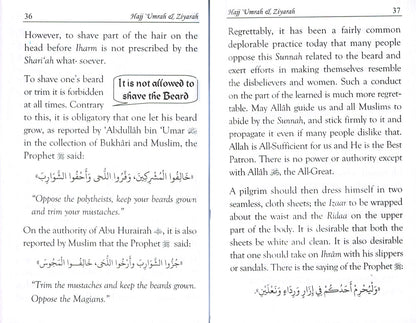 36
Hajj 'Umrah & Ziyarah
However, to shave part of the hair on the
head before Iharm is not prescribed by the
Shari'ah what- soever.
To shave one's beard
or trim it is forbidden
at all times. Contrary
It is not allowed to
shave the Beard
to this, it is obligatory that one let his beard
grow, as reported by 'Abdullâh bin 'Umar ﷺ
in the collection of Bukhâri and Muslim, the
Prophet ﷺ said:
«خَالِفُوا الْمُشْرِكِينَ، وَفِّرُوا اللِّحَى وَأَحْفُوا الشَّوَارِبَ»
"Oppose the polytheists, keep your beards grown
and trim your mustaches."
On the authority of Abu Hurairah, it is also
reported by Muslim that the Prophet ﷺ said:
«جُزُّوا الشَّوَارِبَ وَأَرْخُوا اللِّحَى، خَالِفُوا الْمَجُوسَ»
"Trim the mustaches and keep the beards grown.
Oppose the Magians."
Hajj 'Umrah & Ziyarah
37
Regrettably, it has been a fairly common
deplorable practice today that many people
oppose this Sunnah related to the beard and
exert efforts in making themselves resemble
the disbelievers and women. Such a conduct
on the part of the learned is much more regret-
table. May Allâh guide us and all Muslims to
abide by the Sunnah, and stick firmly to it and
propagate it even if many people dislike that.
Allah is All-Sufficient for us and He is the Best
Patron. There is no power or authority except
with Allâh, the All-Great.
A pilgrim should then dress himself in two
seamless, cloth sheets; the Izaar to be wrapped
around the waist and the Ridaa on the upper
part of the body. It is desirable that both the
sheets be white and clean. It is also desirable
that one should take on Ihrâm with his slippers
or sandals. There is the saying of the Prophet ﷺ:
«وَلْيُحْرِمْ أَحَدُكُمْ فِي إِزَارٍ وَرِدَاءٍ وَنَعْلَيْنِ»